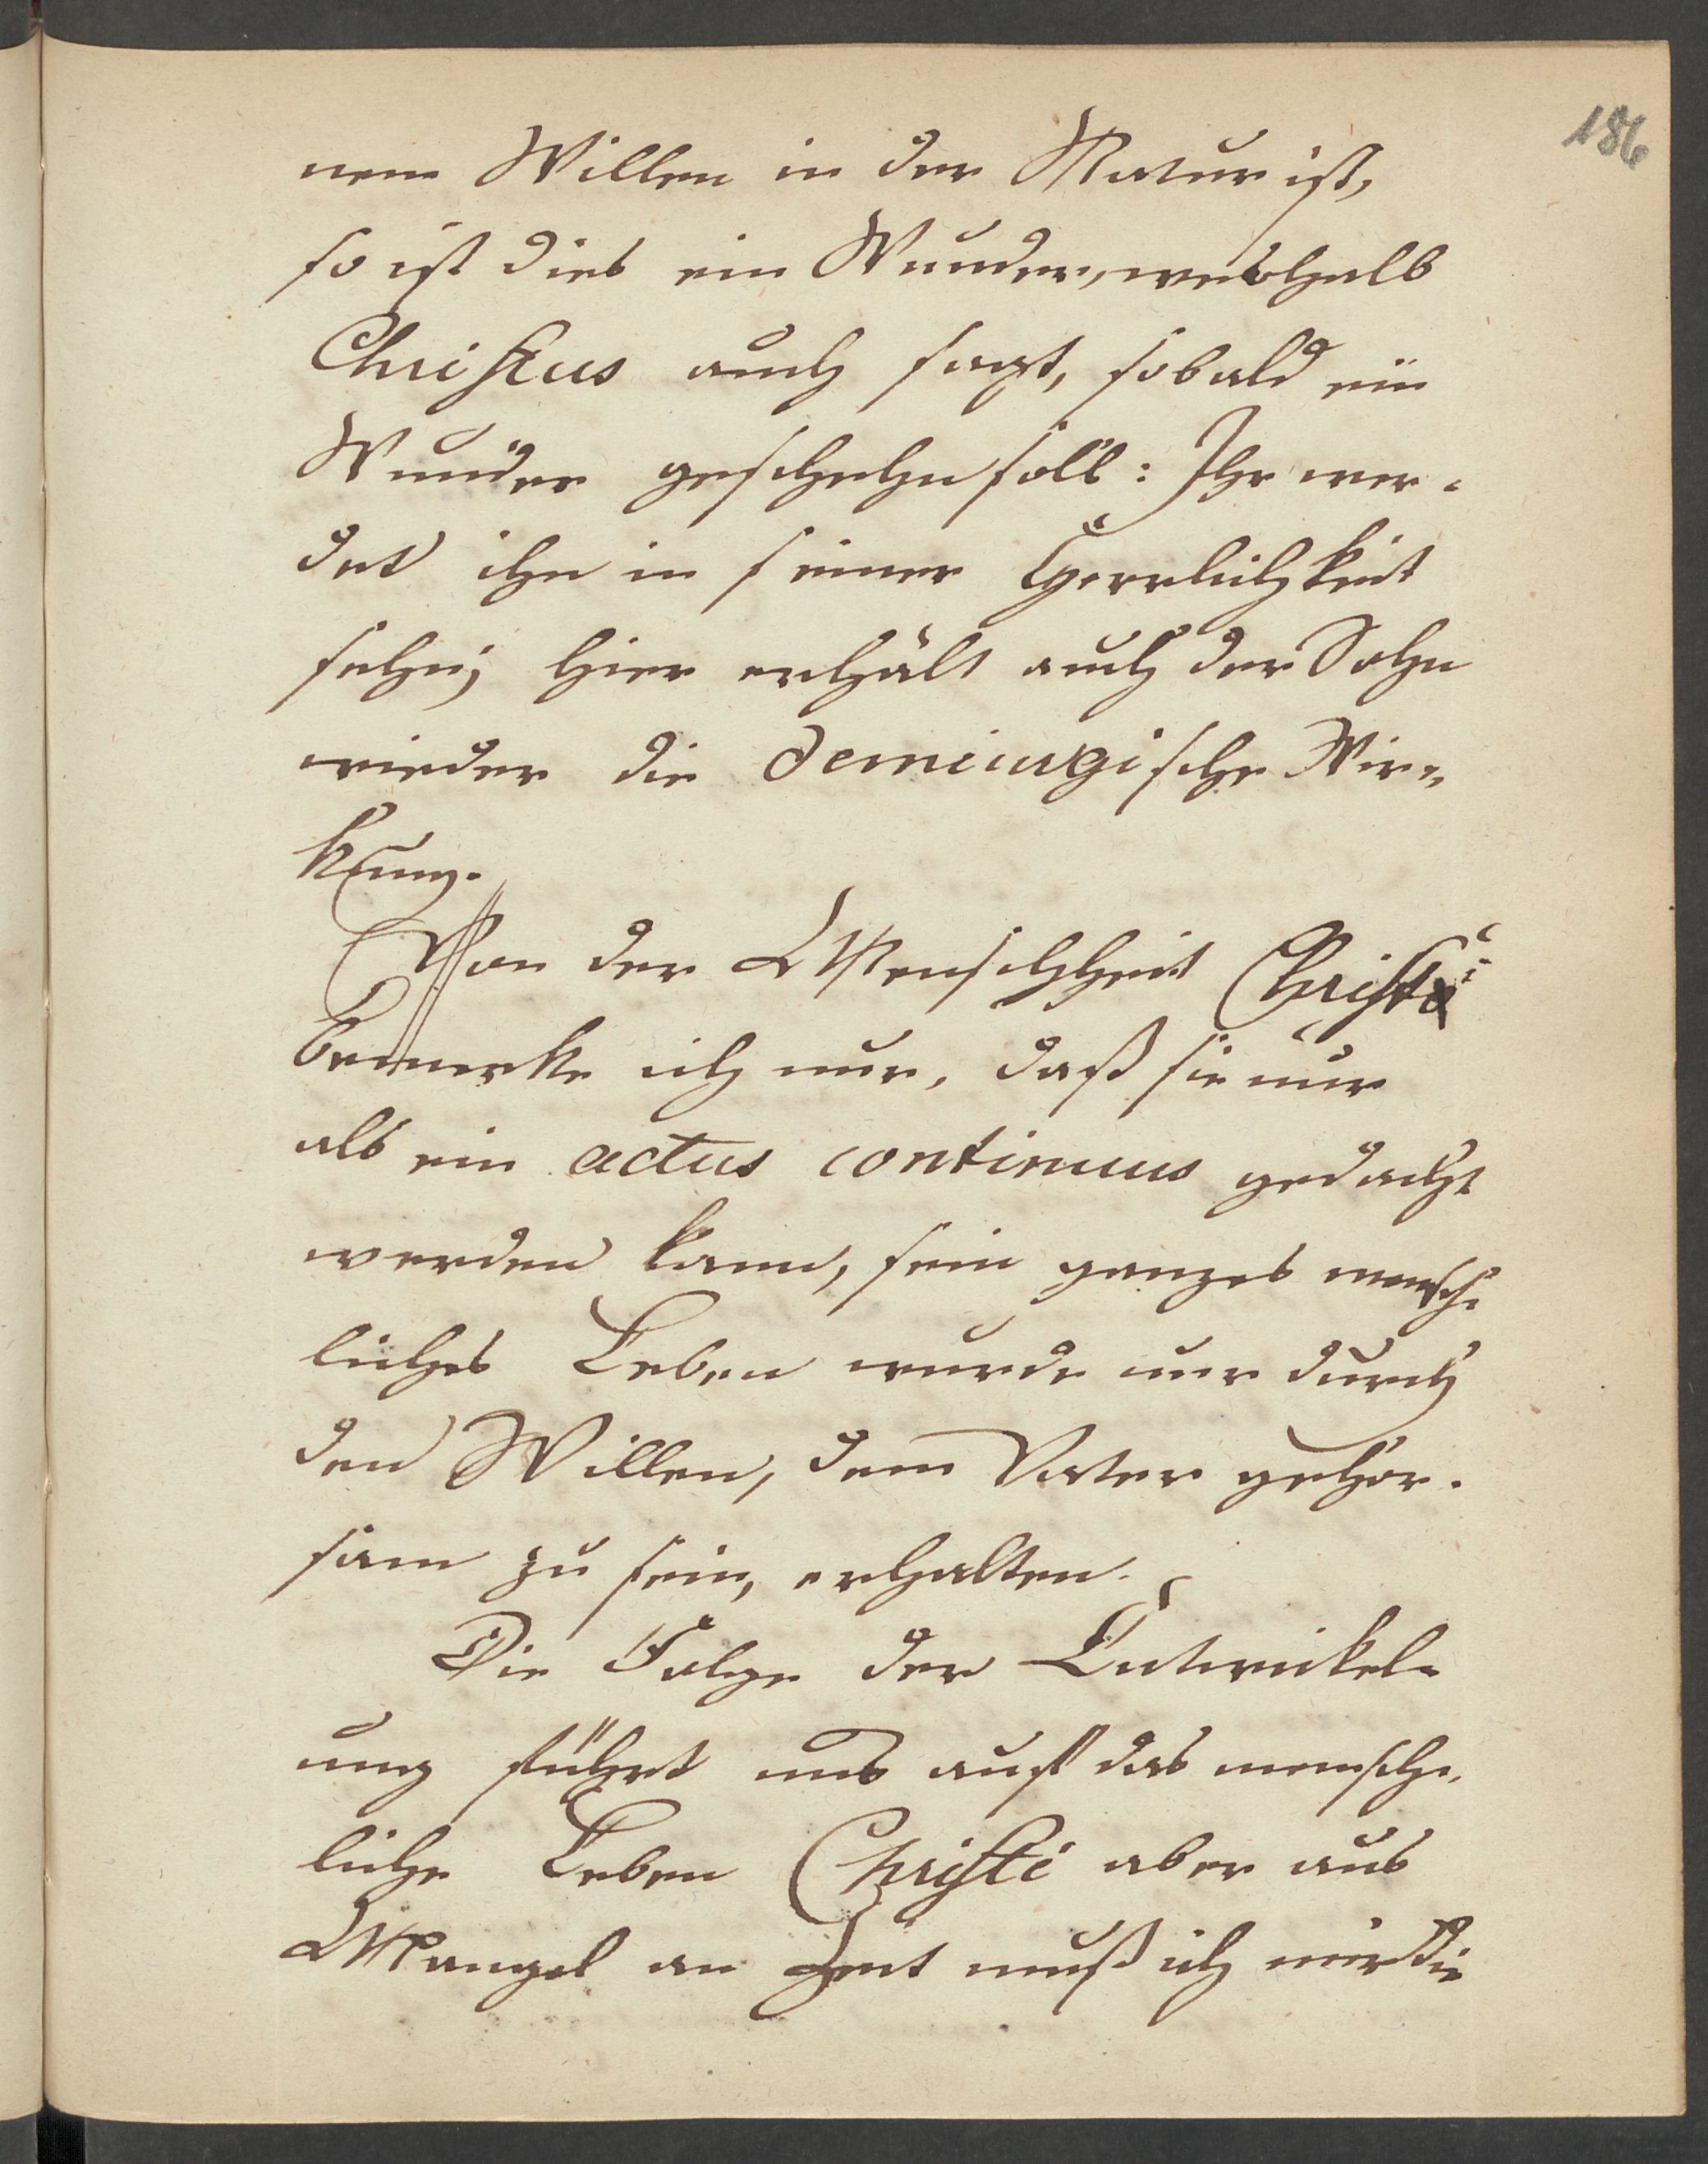 186
nem Willen in der Natur ist,
so ist dies ein Wunder, weshalb
Christus auch sagt, sobald ein
Wunder geschehn soll: Ihr wer-
det ihn in seiner Herrlichkeit
sehn; hier erhält auch der Sohn
wieder die demiurgische Wir-
kung.
Von der Menschheit Christi
bemerke ich nur, daß sie nur
als ein actus continuus gedacht
werden kann, sein ganzes mensch-
liches Leben wurde nur durch
den Willen, dem Vater gehor-
sam zu sein, erhalten.
Die Folge der Entwickel-
ung führt uns auf das mensch-
liche Leben Christi aber aus
Mangel an Zeit muß ich mir die